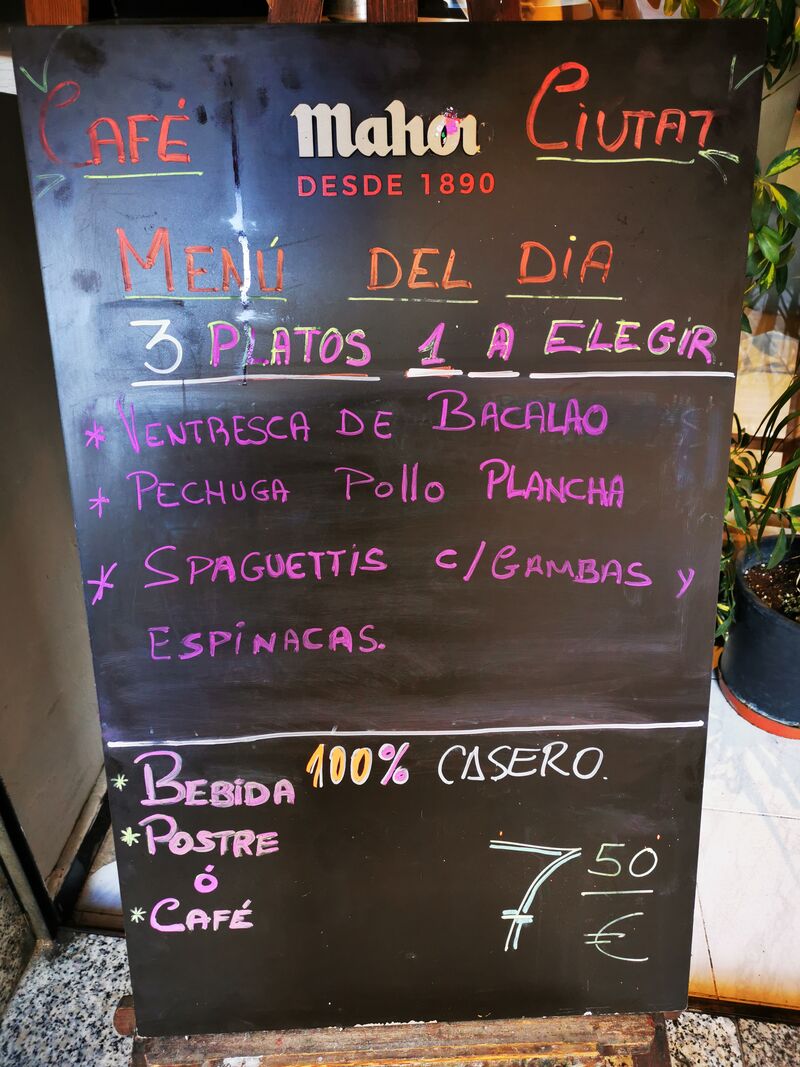 CAFÉ Mahou CIUTAT
DESDE 1890
MENÚ DEL DIA
3 PLATOS 1 A ELEGIR
* VENTRESCA DE BACALAO
* PECHUGA Pollo PLANCHA
* SPAGUETTIS c/GAMBAS y
ESPINACAS.
* BEBIDA 100% CASERO.
* POSTRE
ó
* CAFÉ
7 50 €